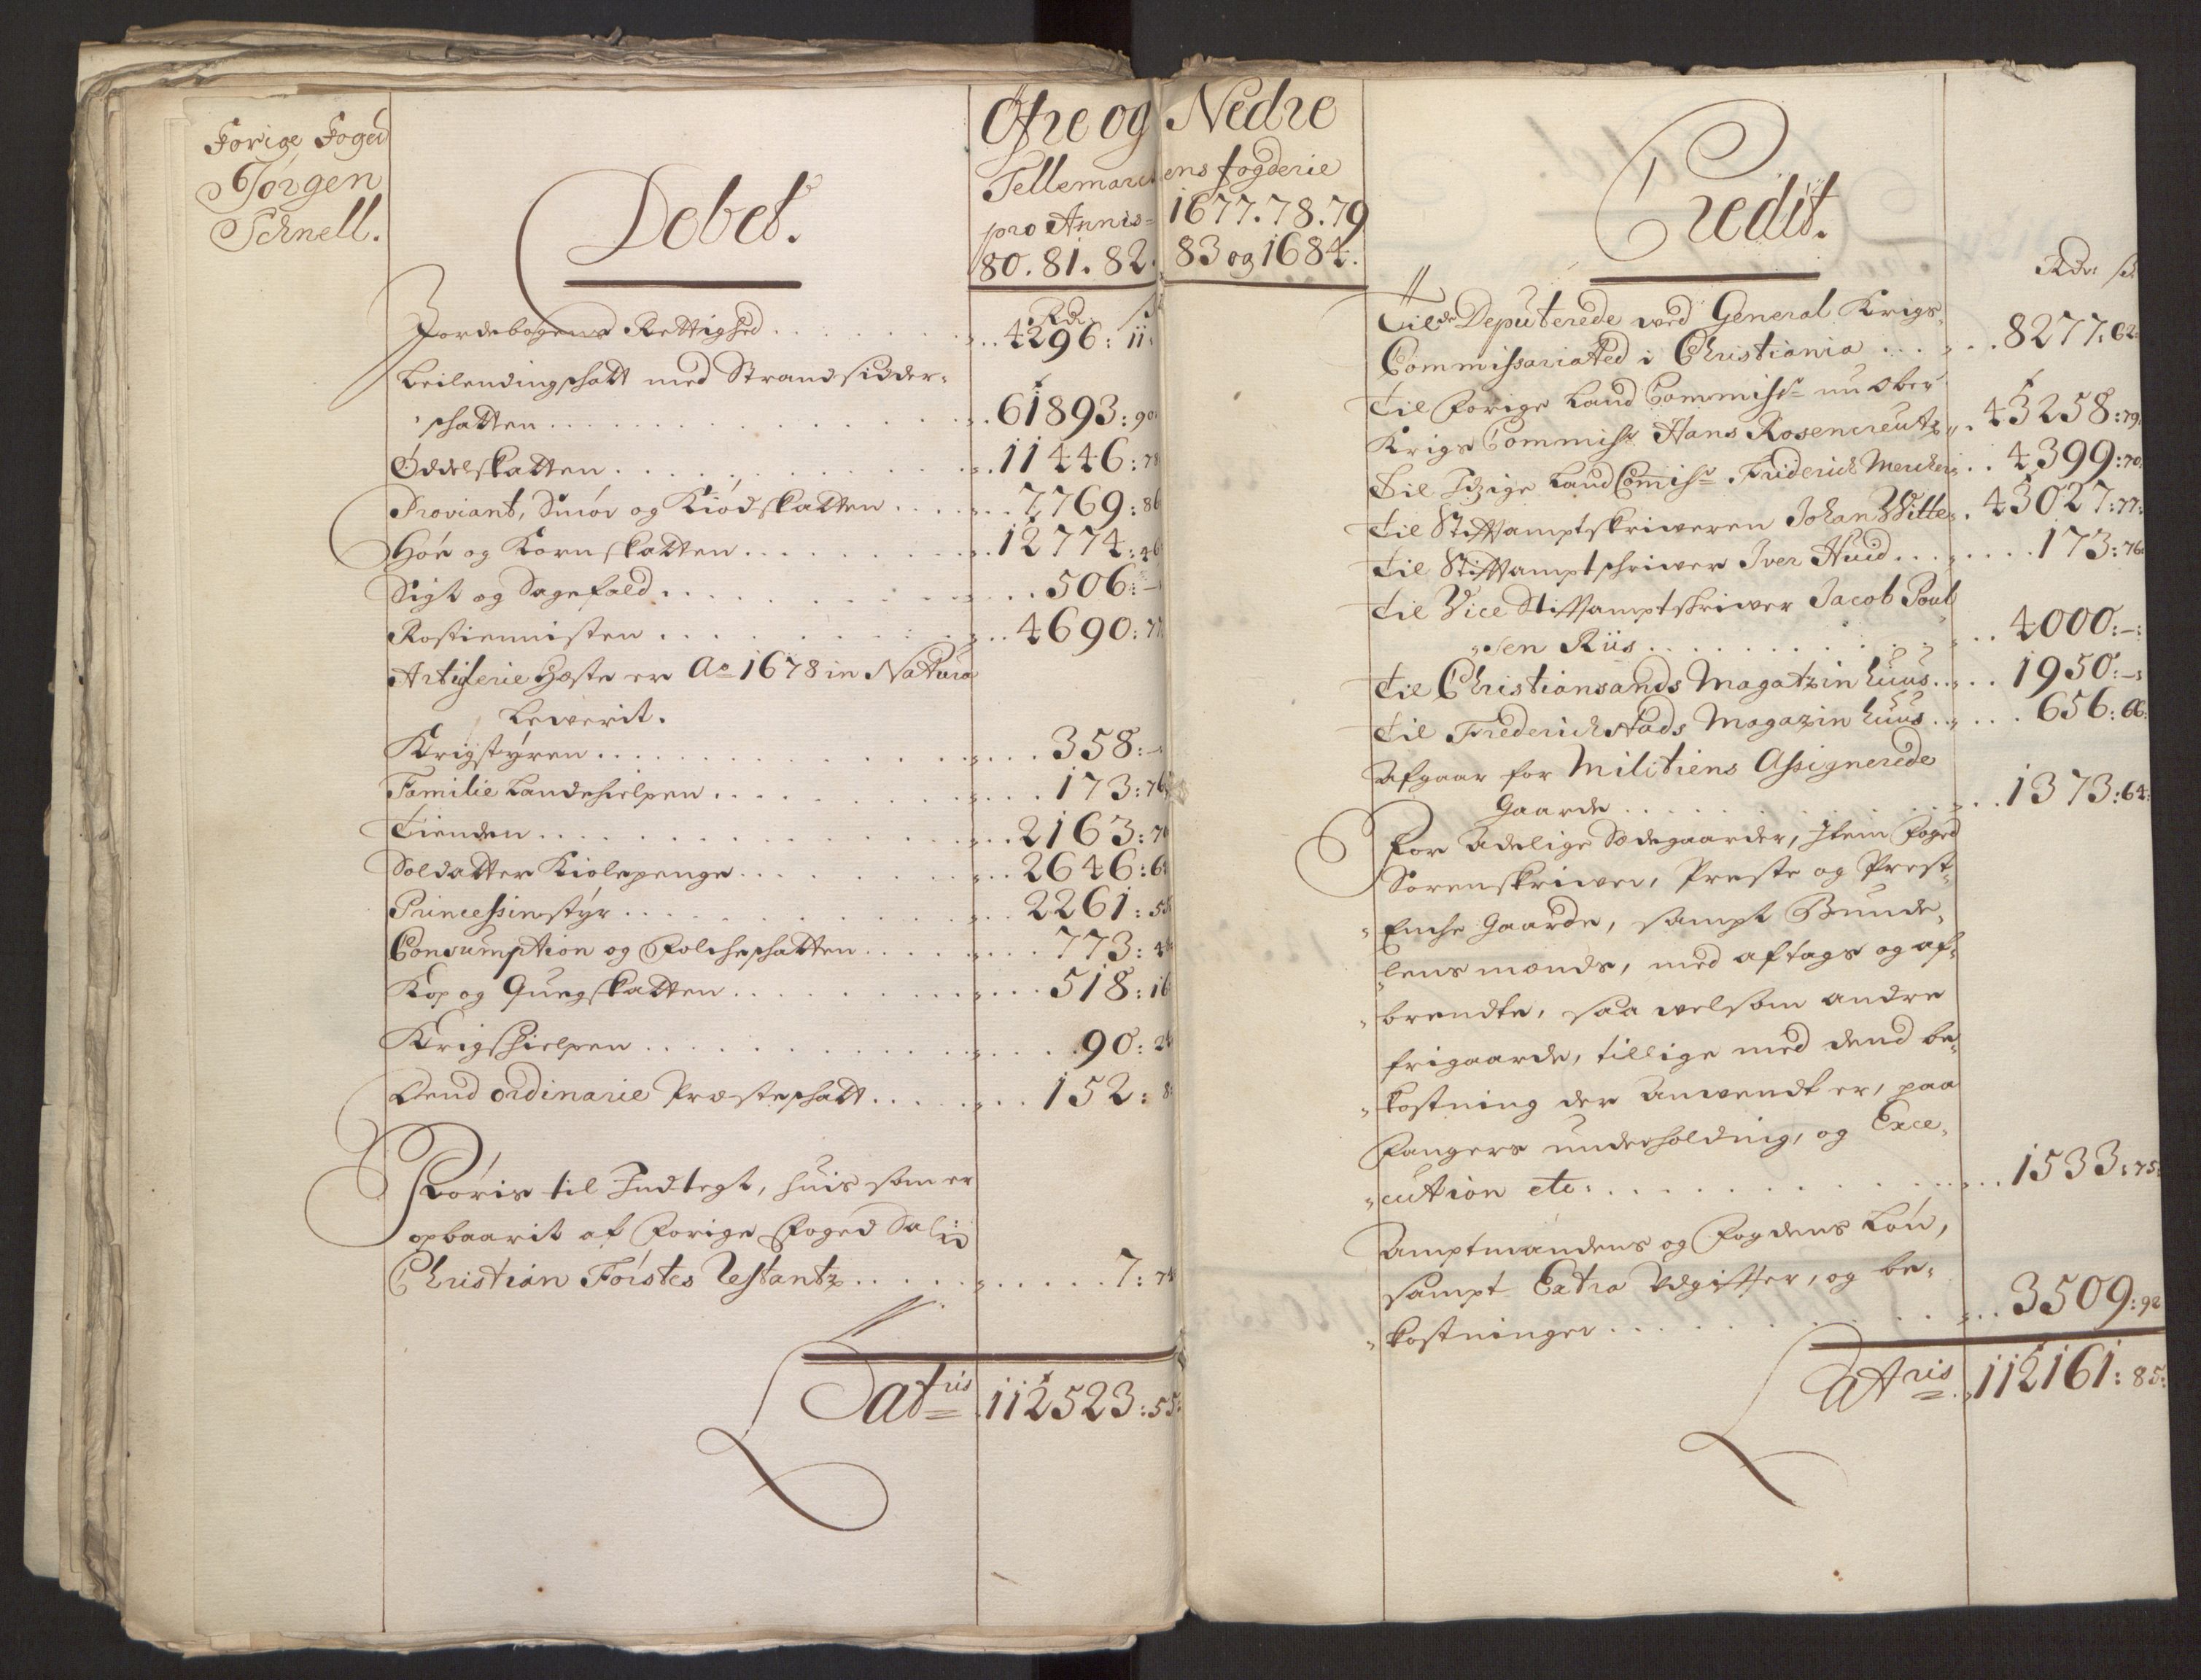 Forige Foged
Jörgen
Schnell.
Debet.
Øfre og Nedre
Tellemarckens fogderie
pro Annis 1677. 78. 79
80. 81. 82. 83 og 1684.
Rdr
Jordebogens Rettighed . . . 4296: 11
Leilendingschatt med Strandsidder-
schatten . . . 61893: 90
Oddelskatten . . . 11446: 78
Proviant, Smör og Kiödskatten . . . 7769: 86
Höe og Kornskatten . . . 12774: 46
Sigt og Sagefald . . . 506: -
Rostiennisten . . . 4690: 77
Artiglerie Heste er Ao 1678 in Natura
Leverit.
Krigstyren . . . 358: -
Familie Landehielpen . . . 173: 76
Tienden . . . 2163: 76
Soldatter Kiolepenge . . . 2646: 6
Princessinstyr . . . 2261: 5
Consumption og Folcheschatten . . . 773: 4
Kop og Quegskatten . . . 518: 16
Krigshielpen . . . 90: 24
Dend ordinarie Præsteschatt . . . 152: 8
Föris til Indtegt, huis som er
opbaarit af Forige Foged Sal:
Christian Förstes Restantz . . . 7: 74
Latris 112523: 55
Credit.
Rdr ß
Til de Deputerede ved General Krigs-
Commissariated i Christiania . . . 8277: 62
Til Forige Land Commiss: nu Ober
Krigs Commiss: Hans Rosencreutz . 43258: 79
Til Itzige Land Commiss: Friderich Mercker . . 4399: 70
Til Stiftamptskriveren Johan Witte . 43027: 77
Til Stiftamptschriver Iver Huid . . . 173: 76
Til Vice Stiftamptskriver Jacob Poul
sen Riis . . . 4000: -
Til Christiansands Magatzin Huus . . . 1950: -
Til Frederichstads Magazin Huus . . . 656: 66
Afgaar for Militiens Assignerede
Gaarde . . . 1373: 64
For Adelige Sædegaarder, Item Foged
Sorenskriver, Præste og Prest-
Enche Gaarde, sampt Bunde-
lensmænds, med aftags og af-
brendte, saa velsom andre
frigaarde, tillige med dend be-
kostning der Anvendt er, paa
Fangers underholdning, og Exce-
cution etc: . . . 1533: 75
Amptmandens og Fogdens Lön,
sampt Extra Udgifter, og be-
kostninger . . . 3509: 92
Latris 112161: 85